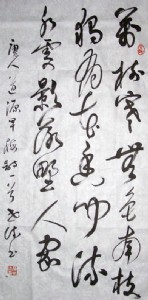 萬樹寒無色南枝
獨有花香聞流
水處影落野人家
唐人道源早梅一首書